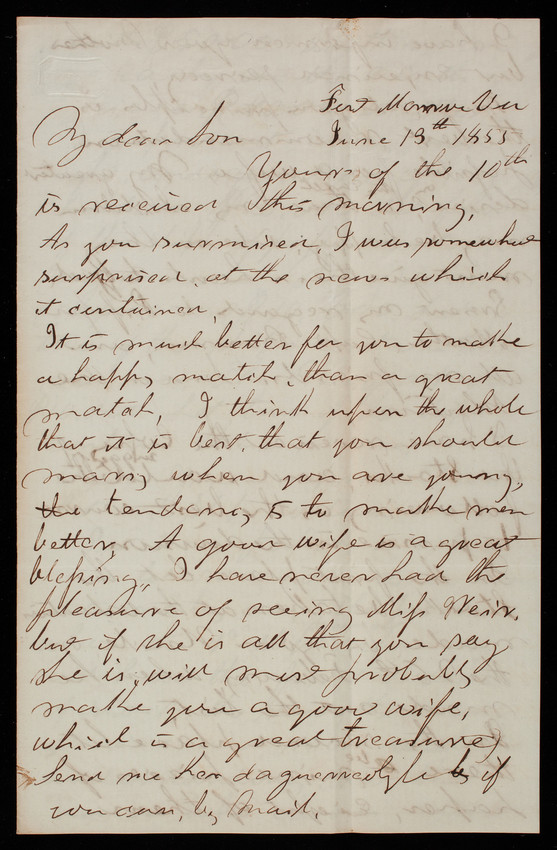 Fort Monroe Va
My dear Son June 13th 1855
Yours of the 10th
is received this morning,
As you surmised, I was somewhat
surprised, at the news which
it contained,
It is much better for you to make
a happy match, than a great
match, I think upon the whole
that it is best, that you should
marry when you are young,
the tendency is to make men
better, A good wife is a great
blessing, I have never had the
pleasure of seeing Miss Weir,
but if she is all that you say
she is, will most probably
make you a good wife,
which is a great treasure,
Send me her daguerreotyle by if
you can, by Mail.